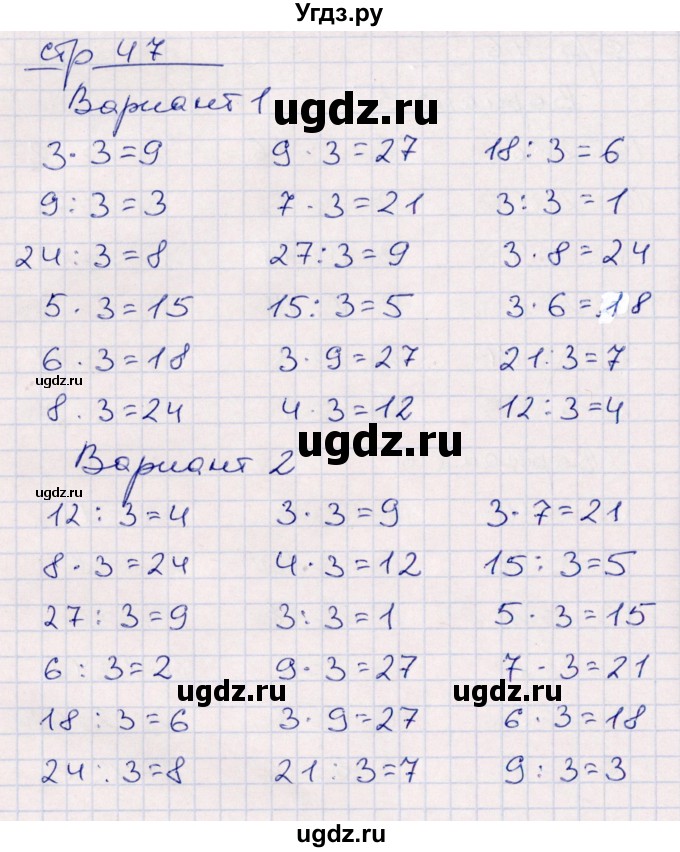 Угдз.ру
стр 47
Вариант 1 ugdz.ru
3 · 3 = 9 9 · 3 = 27 18 : 3 = 6
9 : 3 = 3 7 · 3 = 21 3 : 3 = 1
24 : 3 = 8 27 : 3 = 9 3 · 8 = 24
5 · 3 = 15 15 : 3 = 5 3 · 6 = 18
6 · 3 = 18 3 · 9 = 27 21 : 3 = 7
ugdz.ru
8 · 3 = 24 4 · 3 = 12 12 : 3 = 4
Вариант 2 ugdz.ru
ugdz.ru
12 : 3 = 4 3 · 3 = 9 3 · 7 = 21
8 · 3 = 24 4 · 3 = 12 15 : 3 = 5
27 : 3 = 9 3 : 3 = 1 5 · 3 = 15
6 : 3 = 2 9 · 3 = 27 7 · 3 = 21
ugdz.ru ugdz.ru
18 : 3 = 6 3 · 9 = 27 6 · 3 = 18
24 : 3 = 8 21 : 3 = 7 9 : 3 = 3
ugdz.ru